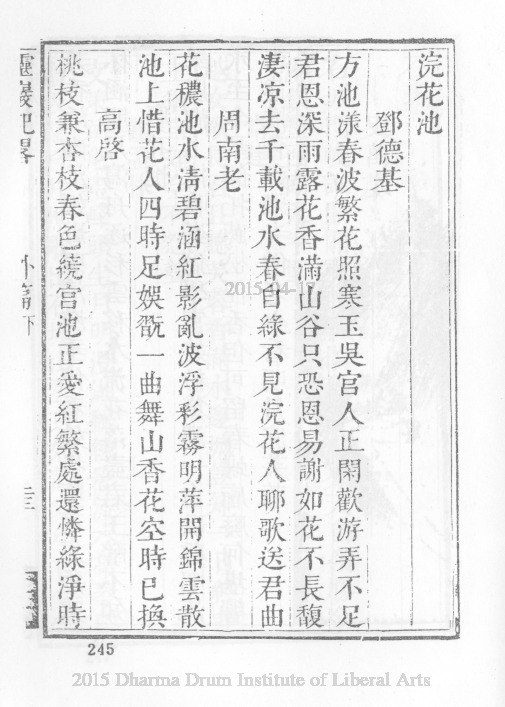 浣花池
鄧德基
方池漾春波繁花照寒玉吳宮人正閑歡游弄不足
君恩深雨露花香滿山谷只恐恩易謝如花不長馥
淒凉去千載池水春自綠不見浣花人聊歌送君曲
周南老
花穠池水清碧涵紅影亂波浮彩霧明萍開錦雲散
池上惜花人四時足娛翫一曲舞山香花空時已換
高啓
桃枝兼杏枝春色繞宫池正愛紅繁處還憐綠淨時
靈巖記畧
外篇下
二三
2015-04-17
245
2015 Dharma Drum Institute of Liberal Arts